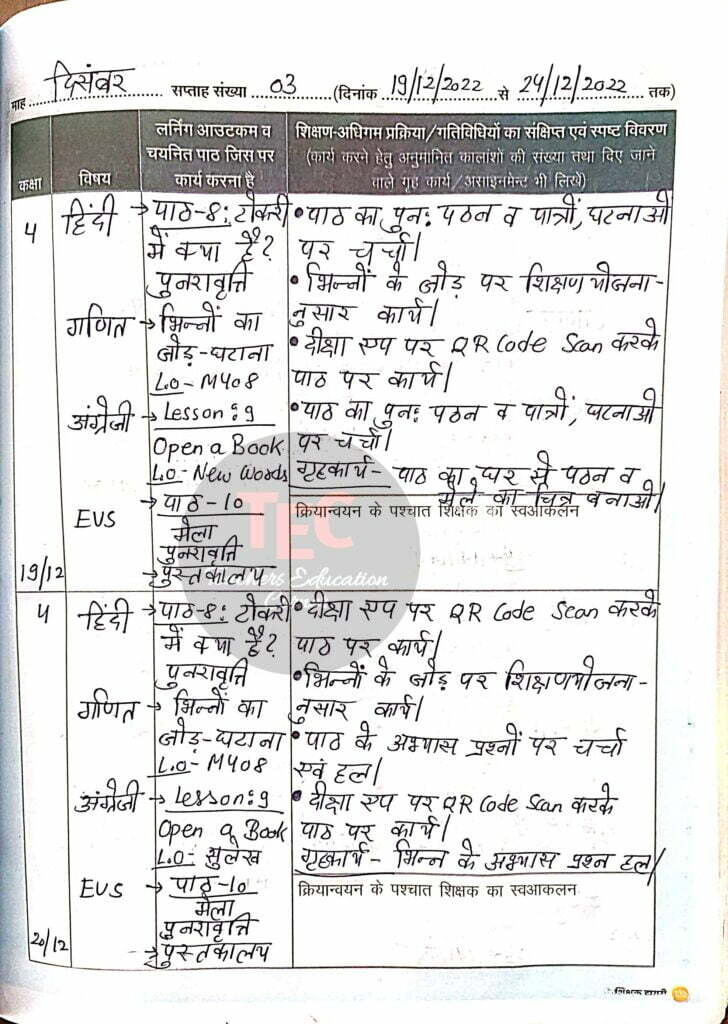 माह दिसंबर सप्ताह संख्या 03 (दिनांक 19/12/2022 से 24/12/2022 तक)
कक्षा
विषय
लर्निंग आउटकम व
चयनित पाठ जिस पर
कार्य करना है
शिक्षण-अधिगम प्रक्रिया/गतिविधियों का संक्षिप्त एवं स्पष्ट विवरण
(कार्य करने हेतु अनुमानित कालांशों की संख्या तथा दिए जाने
वाले गृह कार्य/असाइनमेंट भी लिखें)
4
हिंदी → पाठ-8: टोकरी
में क्या है?
पुनरावृत्ति
गणित → भिन्नों का
जोड़-घटाना
L.O- M408
अंग्रेजी → Lesson:9
Open a Book
L.O- New Words
EVS → पाठ-10
मेला
पुनरावृत्ति
→ पुस्तकालय
19/12
• पाठ का पुन: पठन व पात्रों, घटनाओं
पर चर्चा।
• भिन्नों के जोड़ पर शिक्षण योजना-
नुसार कार्य।
• दीक्षा एप पर QR Code Scan करके
पाठ पर कार्य।
• पाठ का पुन: पठन व पात्रों, घटनाओं
पर चर्चा।
गृहकार्य- पाठ का घर से पठन व
मेले का चित्र बनाओ।
क्रियान्वयन के पश्चात शिक्षक का स्वआकलन
TEC
Teachers Education
4
हिंदी → पाठ-8: टोकरी
में क्या है?
पुनरावृत्ति
गणित → भिन्नों का
जोड़-घटाना
L.O- M408
अंग्रेजी → Lesson:9
Open a Book
L.O- सुलेख
EVS → पाठ-10
मेला
पुनरावृत्ति
→ पुस्तकालय
20/12
• दीक्षा एप पर QR Code Scan करके
पाठ पर कार्य।
• भिन्नों के जोड़ पर शिक्षण योजना-
नुसार कार्य।
• पाठ के अभ्यास प्रश्नों पर चर्चा
एवं हल।
• दीक्षा एप पर QR Code Scan करके
पाठ पर कार्य।
गृहकार्य- भिन्न के अभ्यास प्रश्न हल।
क्रियान्वयन के पश्चात शिक्षक का स्वआकलन
शिक्षक डायरी